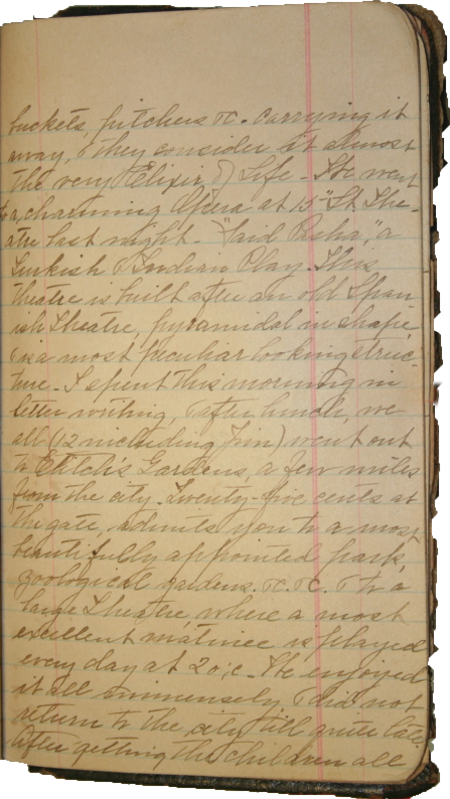 buckets, pitchers &c. carrying it
away, & they consider it almost
the very Elixir of Life - We went
to a charming Opera at 15" St. The-
atre last night. "Said Pasha," a
Turkish & Indian Play. This
theatre is built after an old Span
ish Theatre, pyramidal in shape
& is a most peculiar looking struc-
ture - I spent this morning in
letter writing, & after lunch, we
all (12 including Jim) went out
to Elitch's Gardens, a few miles
from the city. Twenty-five cents at
the gate, admits you to a most
beautifully appointed park,
zoological gardens. &c. &c. & to a
large Theatre where a most
excellent matinee is played
every day at 2 o;c - We enjoyed
it all immensely, & did not
return to the city till quite late.
After getting the children all